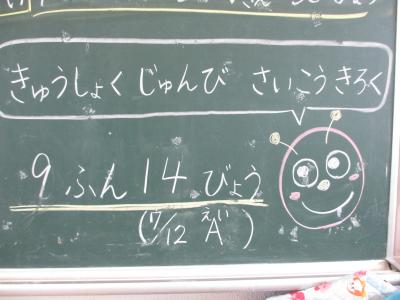 きゅうしょくじゅんび さいこうきろく
9ふん14びょう
(7/12 A)